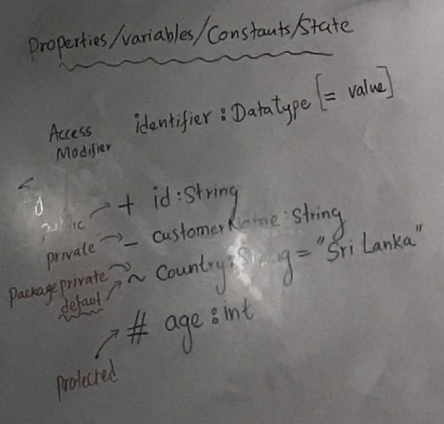 Properties/variables/Constants/State
Access Modifier identifier : Datatype [= value]
public → + id : String
private → - customerName : String
Package private → ~ Country : String = "Sri Lanka"
defaut →
# age : int
protected